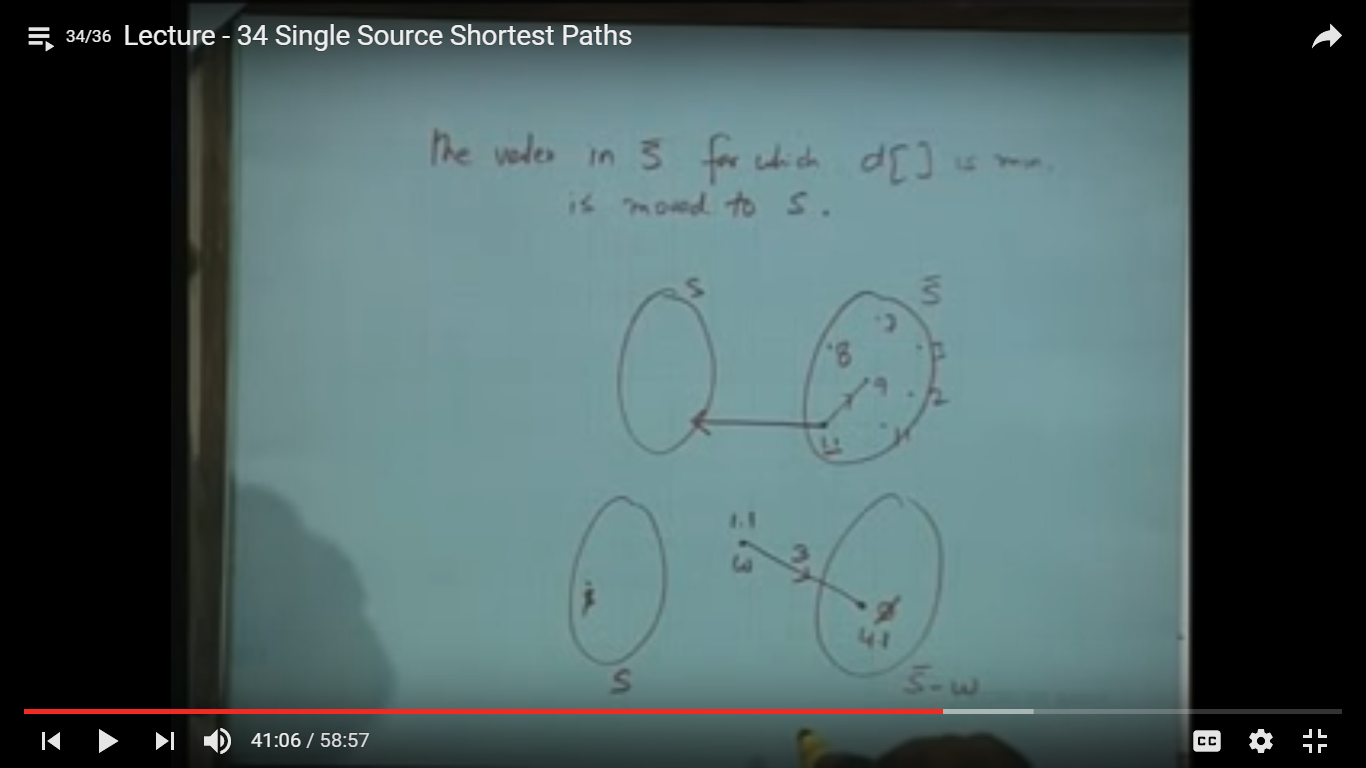 34/36 Lecture - 34 Single Source Shortest Paths
The vertex in S̅ for which d[ ] is min.
is moved to S.
S
S̅
8
9
2
11
1.1
3
w
4.1
S
S̅ - w
41:06 / 58:57
CC